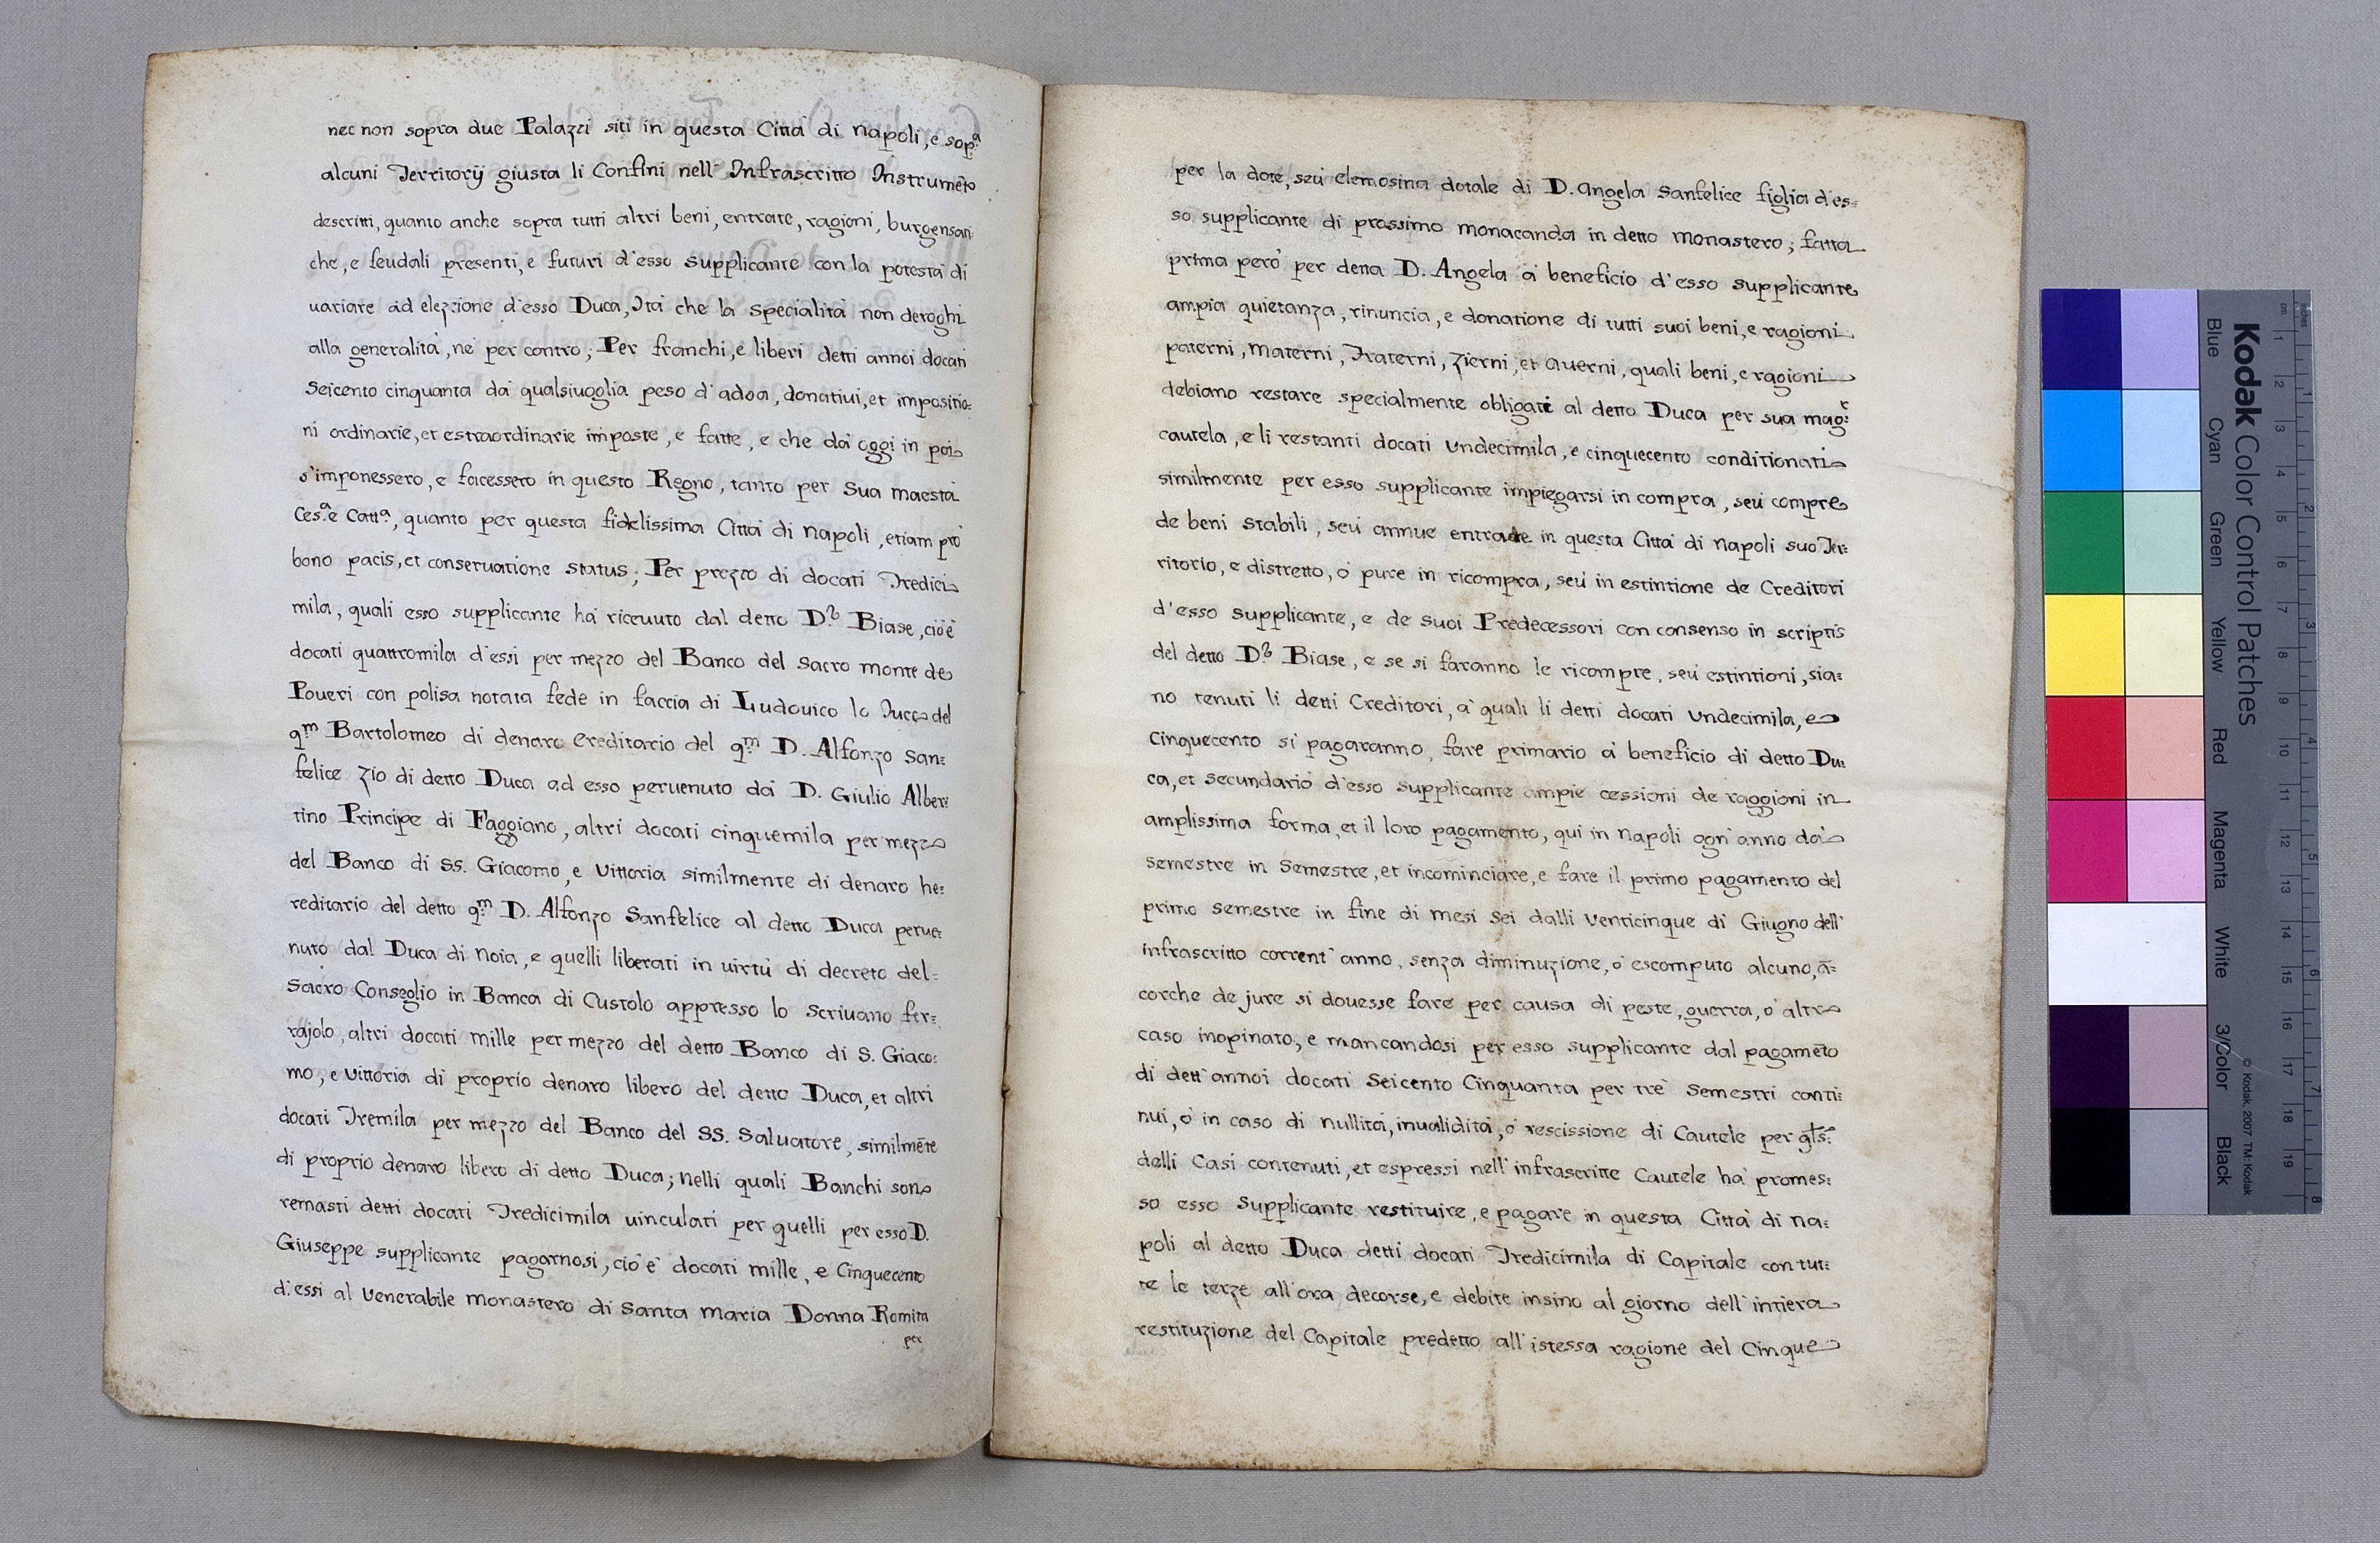 nec non sopra due Palazzi siti in questa Città di Napoli, e sop.ª
alcuni Territorÿ giusta li Confini nell' Infrascritto Instrumēto
descritti, quanto anche sopra tutti altri beni, entrate, ragioni, burgensati
che, e feudali presenti, e futuri d'esso supplicante con la potestà di
uariare ad elezzione d'esso Duca, Ità che la specialità non deroghi
alla generalità, nè per contro; Per franchi, e liberi detti annoi docati
Seicento cinquanta da qualsiuoglia peso d'adoa, donatiui, et impositio=
ni ordinarie, et estraordinarie imposte, e fatte, e che da oggi in poi
s'imponessero, e facessero in questo Regno, tanto per Sua Maestà
Ces.ª e Catt.ª, quanto per questa fidelissima Città di Napoli, etiam prò
bono pacis, et conseruatione status; Per prezzo di docati Tredici
mila, quali esso supplicante hà riceuuto dal detto D.ʳ Biase, cioè
docati quattromila d'essi per mezzo del Banco del Sacro monte de
Poueri con polisa notata fede in faccia di Ludouico lo Jucco del
q.ᵐ Bartolomeo di denaro ereditario del q.ᵐ D. Alfonzo San=
felice zio di detto Duca ad esso peruenuto da D. Giulio Alber=
tino Principe di Faggiano, altri docati cinquemila per mezzo
del Banco di SS. Giacomo, e Vittoria similmente di denaro he=
reditario del detto q.ᵐ D. Alfonzo Sanfelice al detto Duca perue=
nuto dal Duca di Noia, e quelli liberati in uirtù di decreto del=
Sacro Conseglio in Banca di Custolo appresso lo Scriuano fer=
rajolo, altri docati mille per mezzo del detto Banco di S. Giaco=
mo, e Vittoria di proprio denaro libero del detto Duca, et altri
docati Tremila per mezzo del Banco del SS. Saluatore, similmēte
di proprio denaro libero di detto Duca; nelli quali Banchi sono
remasti detti docati Tredicimila uinculati per quelli per esso D.
Giuseppe supplicante pagarnosi, cio è docati mille, e Cinquecento
d'essi al Venerabile monastero di Santa Maria Donna Romita
per
per la dote, seù elemosina dotale di D. Angela Sanfelice figlia d'es=
so supplicante di prossimo monacanda in detto monastero; fatta
prima però per detta D. Angela à beneficio d'esso supplicante
ampia quietanza, rinuncia, e donatione di tutti suoi beni, e ragioni
paterni, Materni, Fraterni, Zierni, et Auerni, quali beni, e ragioni
debiano restare specialmente obligati al detto Duca per sua mag.ʳ
cautela, e li restanti docati Undecimila, e cinquecento conditionati
similmente per esso supplicante impiegarsi in compra, seù compre
de beni stabili, seù annue entrade in questa Città di Napoli suo Ter=
ritorio, e distretto, ò pure in ricompra, seù in estintione de Creditori
d'esso supplicante, e de suoi Predecessori con consenso in scriptis
del detto D.ʳ Biase, e se si faranno le ricompre, seù estintioni, sia=
no tenuti li detti Creditori, à quali li detti docati Undecimila, e
Cinquecento si pagaranno, fare primario à beneficio di detto Du=
ca, et secundario d'esso supplicante ampie cessioni de raggioni in
amplissima forma, et il loro pagamento, qui in Napoli ogn'anno da
semestre in Semestre, et incominciare, e fare il primo pagamento del
primo semestre in fine di mesi Sei dalli Venticinque di Giugno dell'
infrascritto corrent'anno, senza diminuzione, ò escomputo alcuno, ā=
corche de jure si douesse fare per causa di peste, guerra, ò altro
caso inopinato, e mancandosi per esso supplicante dal pagamēto
di dett'annoi docati Seicento Cinquanta per trè Semestri conti=
nui, ò in caso di nullità, inualidità, ò rescissione di Cautele per
delli Casi contenuti, et espressi nell'infrascritte Cautele hà promes=
so esso supplicante restituire, e pagare in questa Città di Na=
poli al detto Duca detti docati Tredicimila di Capitale con tut=
te le terze all'ora decorse, e debite insino al giorno dell'intiera
restituzione del Capitale predetto all'istessa ragione del Cinque
Kodak Color Control Patches
Blue Cyan Green Yellow Red Magenta White 3/Color Black
© Kodak, 2007 TM: Kodak
cm 1 2 3 4 5 6 7 8 9 10 11 12 13 14 15 16 17 18 19
inches 1 2 3 4 5 6 7 8